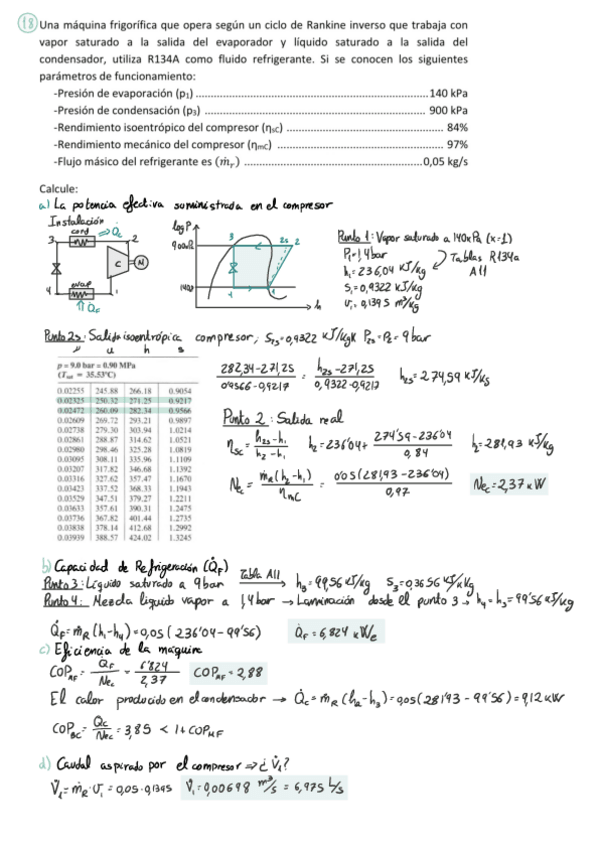 18 Una máquina frigorífica que opera según un ciclo de Rankine inverso que trabaja con
vapor saturado a la salida del evaporador y líquido saturado a la salida del
condensador, utiliza R134A como fluido refrigerante. Si se conocen los siguientes
parámetros de funcionamiento:
-Presión de evaporación (p1) ........ 140 kPa
-Presión de condensación (p3) ........ 900 kPa
-Rendimiento isoentrópico del compresor (ηsc) ........ 84%
-Rendimiento mecánico del compresor (ηmc) ........ 97%
-Flujo másico del refrigerante es (ṁr) ........ 0,05 kg/s
Calcule:
a) La potencia efectiva suministrada en el compresor
Instalación
cond ⇒ Qc
3 2
C M
4 evap 1
⇑ QF
log P
900
140
3 2s 2
4 1
h
Punto 1: Vapor saturado a 140kPa (x=1)
P1=1,4bar
h1=236,04 kJ/kg
S1=0,9322 kJ/kg
v1=0,1395 m³/kg
Tablas R134a
A11
Punto 2s: Salida isoentrópica compresor; S2s=0,9322 kJ/kgK P2s=P2=9bar
v u h s
p = 9.0 bar = 0.90 MPa
(Tsat = 35.53°C)
0.02255 245.88 266.18 0.9054
0.02325 250.32 271.25 0.9217
0.02472 260.09 282.34 0.9566
0.02609 269.72 293.21 0.9897
0.02738 279.30 303.94 1.0214
0.02861 288.87 314.62 1.0521
0.02980 298.46 325.28 1.0819
0.03095 308.11 335.96 1.1109
0.03207 317.82 346.68 1.1392
0.03316 327.62 357.47 1.1670
0.03423 337.52 368.33 1.1943
0.03529 347.51 379.27 1.2211
0.03633 357.61 390.31 1.2475
0.03736 367.82 401.44 1.2735
0.03838 378.14 412.68 1.2992
0.03939 388.57 424.02 1.3245
(282,34-271,25)/(0,9566-0,9217) = (h2s-271,25)/(0,9322-0,9217) h2s=274,59 kJ/kg
Punto 2: Salida real
ηsc=(h2s-h1)/(h2-h1) h2=236'04+(274'59-236'04)/0,84 h2=281,93 kJ/kg
Nec=ṁR(h2-h1)/ηmc=0'05(281,93-236'04)/0,97 Nec=2,37kW
b) Capacidad de Refrigeración (Q̇F)
Punto 3: Líquido saturado a 9bar Tabla A11 → h3=99,56 kJ/kg S3=0,3656 kJ/kgKg
Punto 4: Mezcla liquido vapor a 1,4bar → Laminación desde el punto 3 → h4=h3=99'56 kJ/kg
Q̇F=ṁR(h1-h4)=0,05(236'04-99'56) Q̇F=6,824 kWe
c) Eficiencia de la maquina
COPMF=QF/Nec=6'824/2,37 COPMF=2,88
El calor producido en el condensador → Q̇c=ṁR(h2-h3)=0,05(281'93-99'56)=9,12kW
COPBC=Qc/Nec=3,85 < 1+COPMF
d) Caudal aspirado por el compresor ⇒ ¿V̇1?
V̇1=ṁR·v1=0,05·0,1395 V̇1=0,00698 m³/s = 6,975 L/s